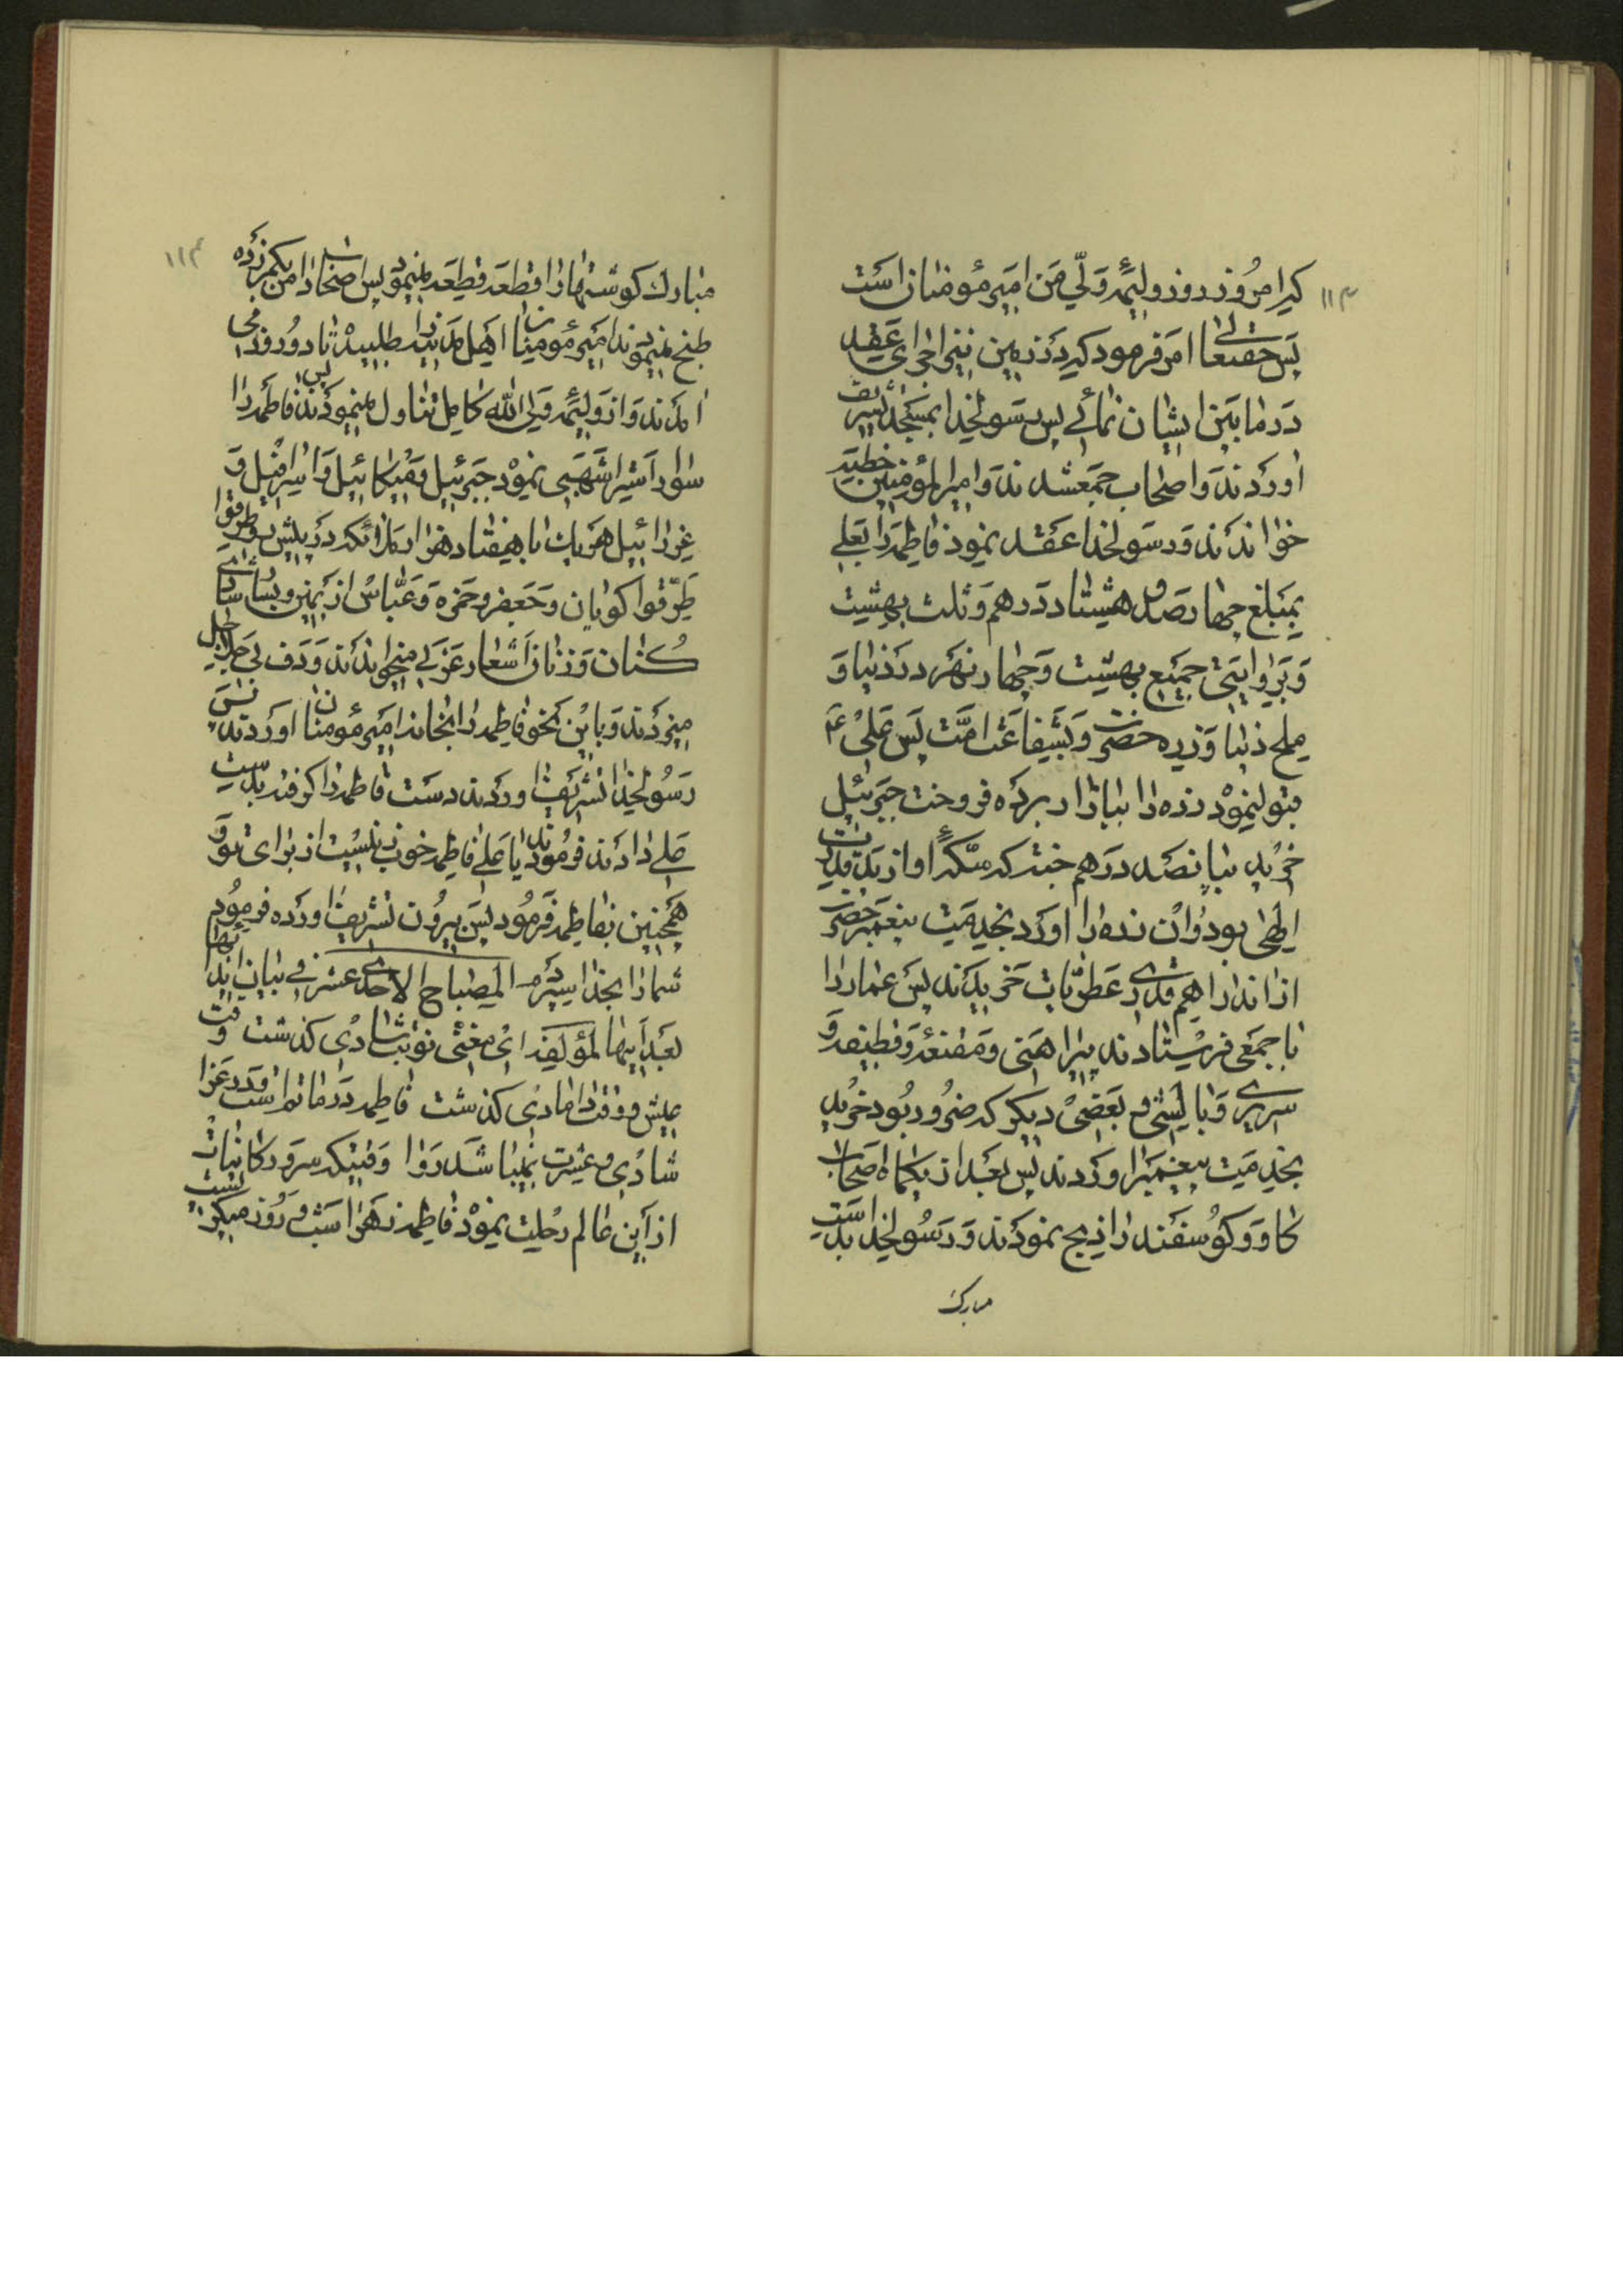 که امروز روز ولیمهٔ ولی من امیر مومنان است
۱۱۳
پس حقتعالی امر فرمود که در زمین نیز اجرای عقد
در مابین ایشان نمائی پس رسولخدا بمسجد تشریف
اوردند و اصحاب جمع شدند و امیر المؤمنین خطبه
خواندند و رسولخدا عقد نمود فاطمه را بعلی
بمبلغ چهار صد و هشتاد درهم و ثلث بهشت
و بروایتی جمیع بهشت و چهار نهر در دنیا و
ملح دنیا و زره حضرت و بشفاعت امت پس علی ع
قبول نمود زره را ببازار برده فروخت جبرئیل
خرید بپانصد درهم که سکه او از ید قدرت
الهی بود و ان زره را اورد بخدمت پیغمبر حضرت
از ان دراهم قدری عطریات خریدند پس عمار را
با جمعی فرستادند پیراهنی و مقنعه و قطیفه و
سریر و بالشی و بعضی دیکر که ضرور بود خرید
بخدمت پیغمبر اوردند پس بعد از یکماه اصحاب
کاو و کوسفند را ذبح نمودند و رسولخدا بدست
مبارک
۱۱۴
مبارک کوشتها را قطعه قطعه مینمود پس اصحاب
طبخ مینمودند امیر مومنان اهل مدینه را طلبید تا دو روز می
امدند و از ولیمه ولی الله کامل تناول مینمودند پس فاطمه را
سوار استر اشهبی نمود جبرئیل و میکائیل و اسرافیل و
عزرائیل هریک با هفتاد هزار ملائکه در پیش رو طرقوا
طرقوا کویان و جعفر و حمزه و عباس از یمین و یسار شادی
کنان و زنان اشعار عربی میخواندند و دف بی جلاجل
میزدند و باین نحو فاطمه را بخانه امیر مومنان اوردند پس
رسولخدا تشریف اوردند دست فاطمه را کرفته بدست
علی دادند فرمودند یا علی فاطمه خوب زنیست از برای تو و
همچنین بفاطمه فرمود پس بیرون تشریف اورده فرمود
شما را بخدا سپردم المصباح الاحدی عشر فی بیان
بعد ابیها لمؤلفه ای مغنی نوبت شادی کذشت وقت
عیش و وقت دامادی کذشت فاطمه در ماتم است و در عزا
شادی و عشرت نمیباشد روا وقتیکه سرور کاینات
از این عالم رحلت نمود فاطمه زهرا شب و روز میکریست